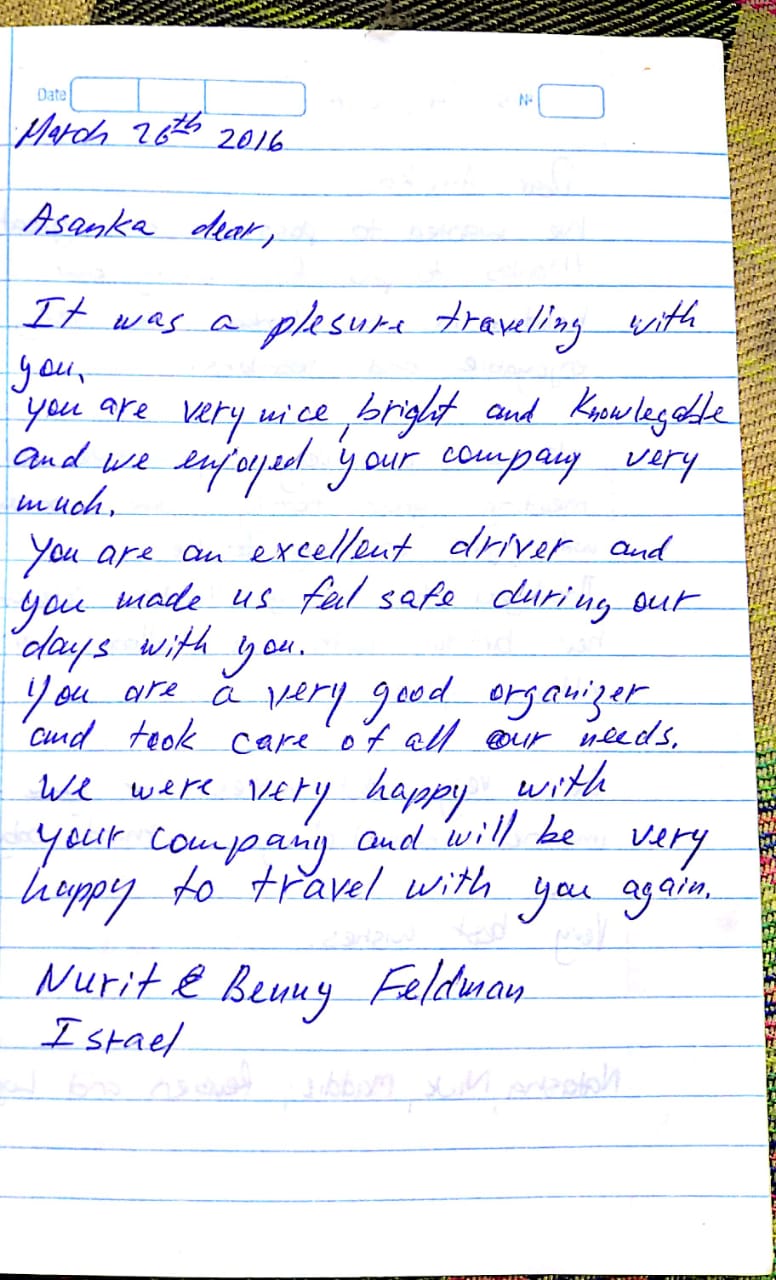 Date
Nº
March 26th 2016
Asanka dear,
It was a plesure traveling with
you.
you are very nice, bright and Knowlegable
and we enjoyed your company very
much.
You are an excellent driver and
you made us feel safe during our
days with you.
You are a very good organizer
and took care of all our needs.
We were very happy with
your company and will be very
happy to travel with you again.
Nurit & Benny Feldman
Israel